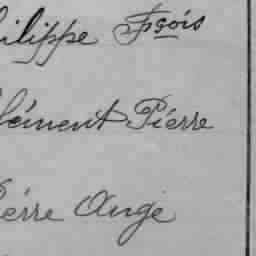 hilippe Fçois
lément Piérre
iérre Ange